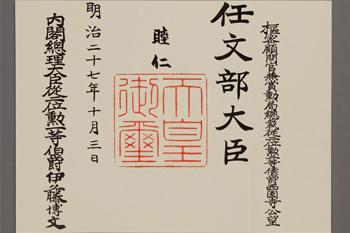 樞密顧問官兼賞勲局總裁從二位勲一等侯爵西園寺公望
任文部大臣
睦仁
天皇御璽
明治二十七年十月三日
内閣總理大臣從二位勲一等伯爵伊藤博文